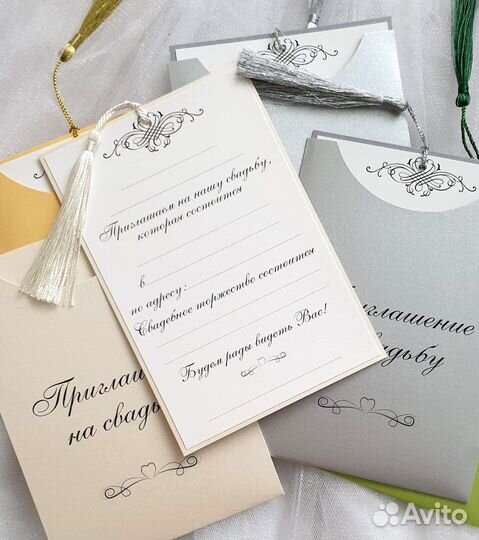 Приглашаем на нашу свадьбу,
которая состоится
в
по адресу:
Свадебное торжество состоится
Будем рады видеть Вас!
на
Avito